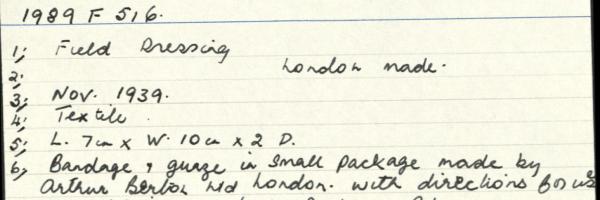 1989 F 516.
1; Field Dressing
2; London made.
3; Nov. 1939.
4; Textile.
5; L. 7cm x W. 10cm x 2 D.
6; Bandage & guaze in small package made by
Arthur Berton Ltd London. with directions for use